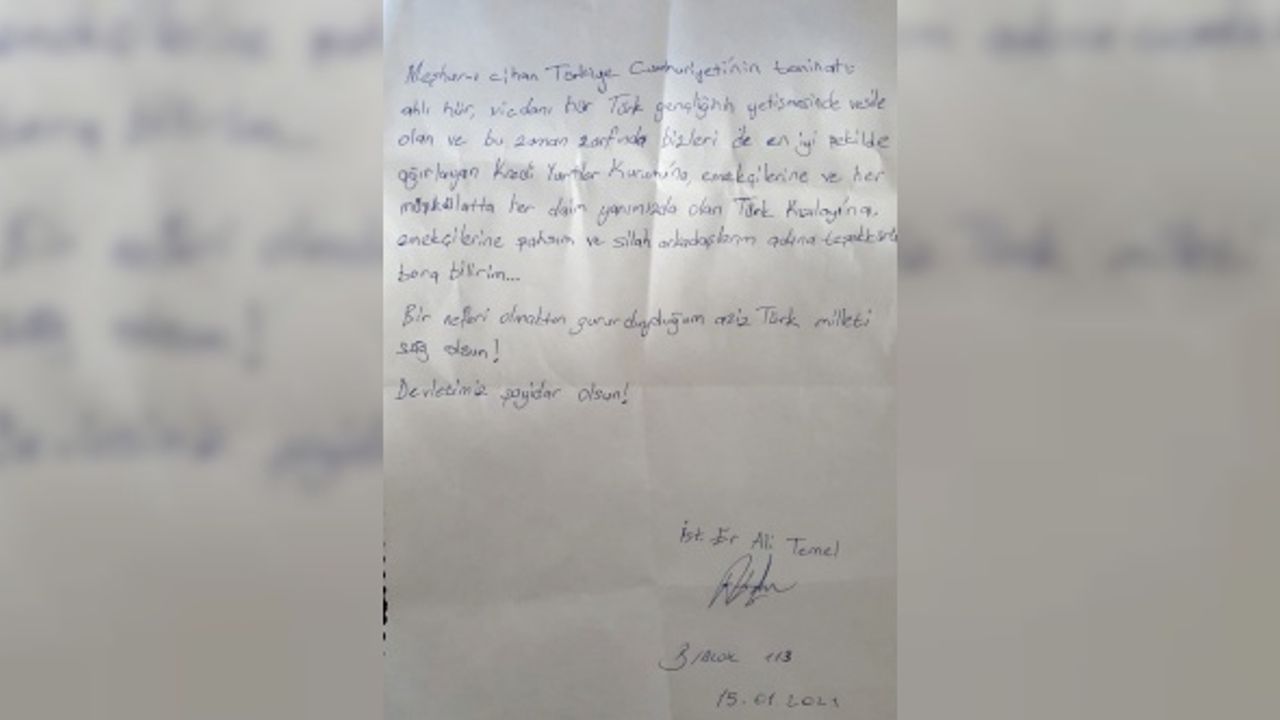 Meşhur-u cihan Türkiye Cumhuriyeti'nin teminatı
aklı hür, vicdanı hür Türk gençliğinin yetişmesinde vesile
olan ve bu zaman zarfında bizleri de en iyi şekilde
ağırlayan Kredi Yurtlar Kurumu'na, emekçilerine ve her
müşkülatta her daim yanımızda olan Türk Kızılayı'na,
emekçilerine şahsım ve silah arkadaşlarım adına teşekkürü
borç bilirim...
Bir neferi olmaktan gurur duyduğum aziz Türk milleti
sağ olsun!
Devletimiz payidar olsun!
İst. Er Ali Temel
B Blok 113
15.01.2021